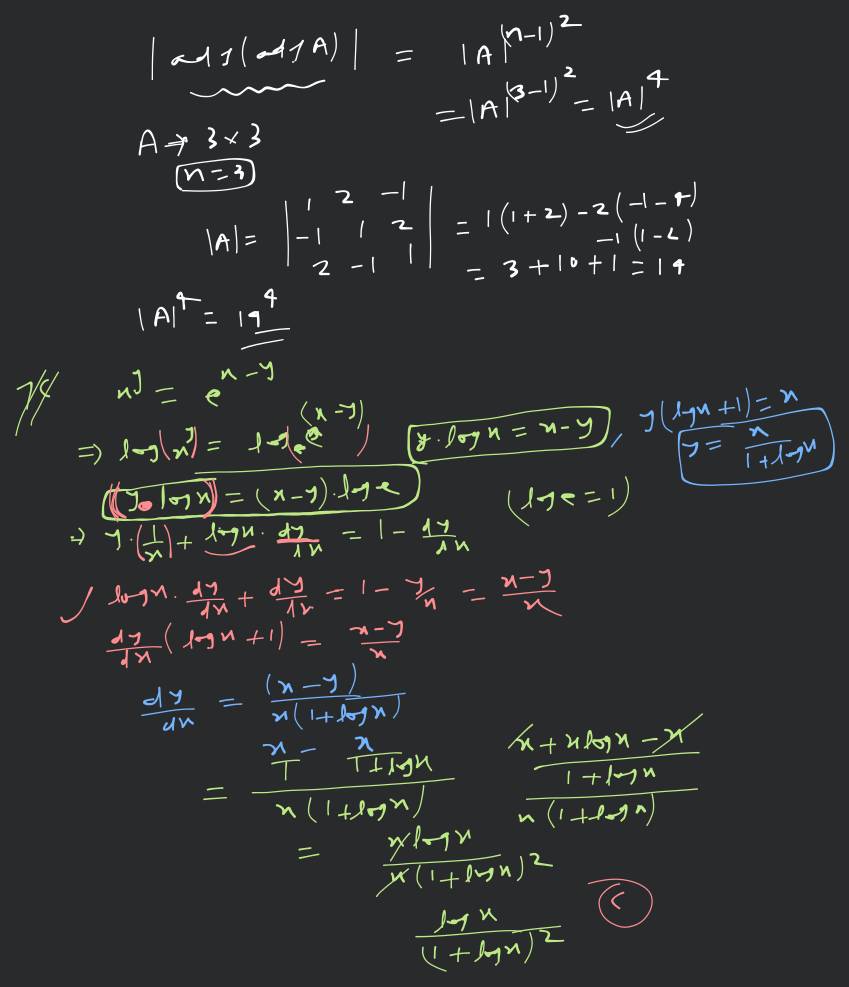 |adj(adjA)| = |A|^(n-1)^2
= |A|^(3-1)^2 = |A|^4
A → 3×3
n=3
|A| = | 1 2 -1 | = 1(1+2) - 2(-1-4)
| -1 1 2 | -1(1-2)
| 2 -1 1 | = 3+10+1 = 14
|A|^4 = 14^4
x^y = e^(x-y)
⇒ log(x^y) = log_e e^(x-y) y·logx = x-y, y(logx+1) = x
y = x/(1+logx)
(y·logx) = (x-y)·loge (loge=1)
⇒ y·(1/x) + logx·dy/dx = 1 - dy/dx
✓ logx·dy/dx + dy/dx = 1 - y/x = (x-y)/x
dy/dx (logx+1) = (x-y)/x
dy/dx = (x-y)/(x(1+logx))
= (x/1 - x/(1+logx))/(x(1+logx)) ((x+xlogx-x)/(1+logx))/(x(1+logx))
= xlogx/(x(1+logx)^2)
logx/(1+logx)^2